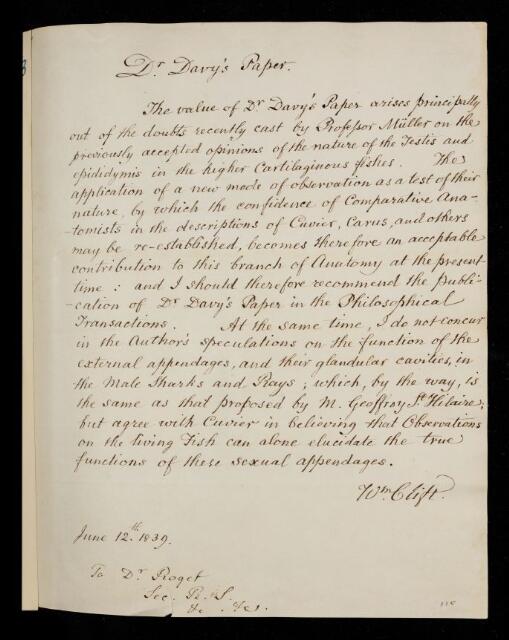 Dr Davy's Paper.
The value of Dr Davy's Paper arises principally
out of the doubts recently cast by Professor Müller on the
previously accepted opinions of the nature of the Testis and
epididymis in the higher Cartilaginous fishes. The
application of a new mode of observation as a test of their
nature, by which the confidence of Comparative Ana-
-tomists in the descriptions of Cuvier, Carus, and others
may be re-established, becomes therefore an acceptable
contribution to this branch of Anatomy at the present
time: and I should therefore recommend the publi-
-cation of Dr Davy's Paper in the Philosophical
Transactions. At the same time, I do not concur
in the Author's speculations on the function of the
external appendages, and their glandular cavities, in
the Male Sharks and Rays; which, by the way, is
the same as that proposed by M. Geoffroy St Hilaire;
but agree with Cuvier in believing that Observations
on the living Fish can alone elucidate the true
functions of these sexual appendages.
Wm Clift.
June 12th 1839.
To Dr Roget
Sec. R.S.
&c. &c.